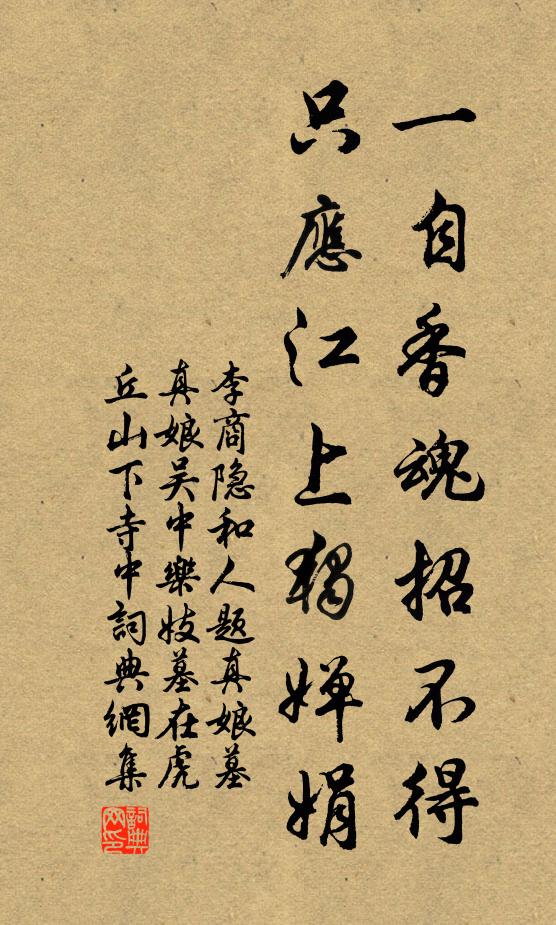 一自香魂招不得
只應江上獨嬋娟
李商隐和人题真娘墓
真娘吴中樂妓墓在虎
丘山下寺中詞典網集
詞典
网印